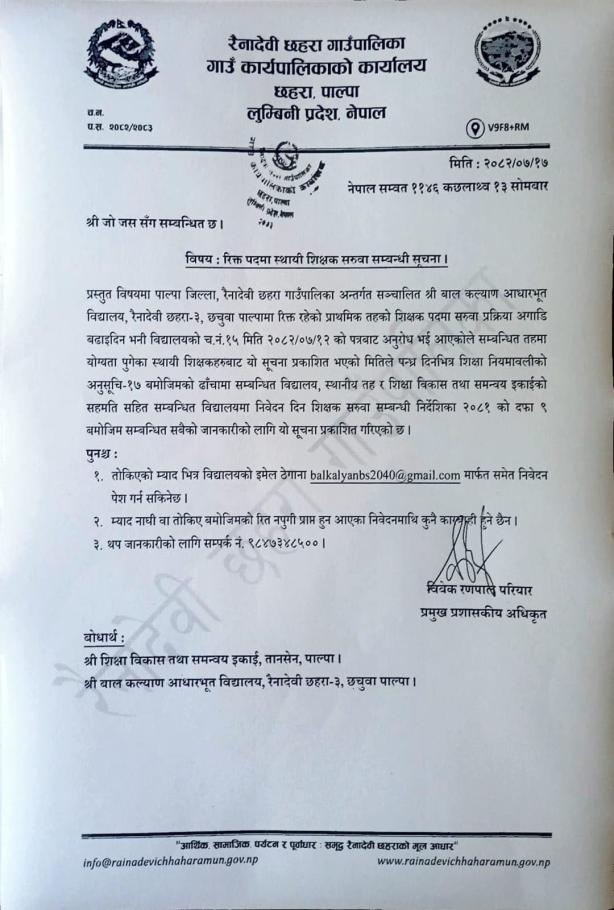 रैनादेवी छहरा गाउँपालिका
गाउँ कार्यपालिकाको कार्यालय
छहरा, पाल्पा
लुम्बिनी प्रदेश, नेपाल
च.न.
प.स. २०८२/२०८३
V9F8+RM
मिति : २०८२/०७/१७
नेपाल सम्वत ११४६ कछलाथ्व १३ सोमबार
श्री जो जस सँग सम्बन्धित छ ।
विषय : रिक्त पदमा स्थायी शिक्षक सरुवा सम्बन्धी सूचना ।
प्रस्तुत विषयमा पाल्पा जिल्ला, रैनादेवी छहरा गाउँपालिका अन्तर्गत सञ्चालित श्री बाल कल्याण आधारभूत
विद्यालय, रैनादेवी छहरा-३, छचुवा पाल्पामा रिक्त रहेको प्राथमिक तहको शिक्षक पदमा सरुवा प्रक्रिया अगाडि
बढाइदिन भनी विद्यालयको च.नं.१५ मिति २०८२/०७/१२ को पत्रबाट अनुरोध भई आएकोले सम्बन्धित तहमा
योग्यता पुगेका स्थायी शिक्षकहरुबाट यो सूचना प्रकाशित भएको मितिले पन्ध्र दिनभित्र शिक्षा नियमावलीको
अनुसूचि-१७ बमोजिमको ढाँचामा सम्बन्धित विद्यालय, स्थानीय तह र शिक्षा विकास तथा समन्वय इकाईको
सहमति सहित सम्बन्धित विद्यालयमा निवेदन दिन शिक्षक सरुवा सम्बन्धी निर्देशिका २०८१ को दफा ९
बमोजिम सम्बन्धित सबैको जानकारीको लागि यो सूचना प्रकाशित गरिएको छ ।
पुनश्च :
१. तोकिएको म्याद भित्र विद्यालयको इमेल ठेगाना balkalyanbs2040@gmail.com मार्फत समेत निवेदन
पेश गर्न सकिनेछ ।
२. म्याद नाघी वा तोकिए बमोजिमको रित नपुगी प्राप्त हुन आएका निवेदनमाथि कुनै कारवाही हुने छैन ।
३. थप जानकारीको लागि सम्पर्क नं. ९८४७३४८५०० ।
विवेक रणपाल परियार
प्रमुख प्रशासकीय अधिकृत
बोधार्थ :
श्री शिक्षा विकास तथा समन्वय इकाई, तानसेन, पाल्पा ।
श्री बाल कल्याण आधारभूत विद्यालय, रैनादेवी छहरा-३, छचुवा पाल्पा ।
रैनादेवी छहरा गाउँपालिका
"आर्थिक, सामाजिक, पर्यटन र पूर्वाधार : समृद्ध रैनादेवी छहराको मूल आधार"
info@rainadevichhaharamun.gov.np
www.rainadevichhaharamun.gov.np